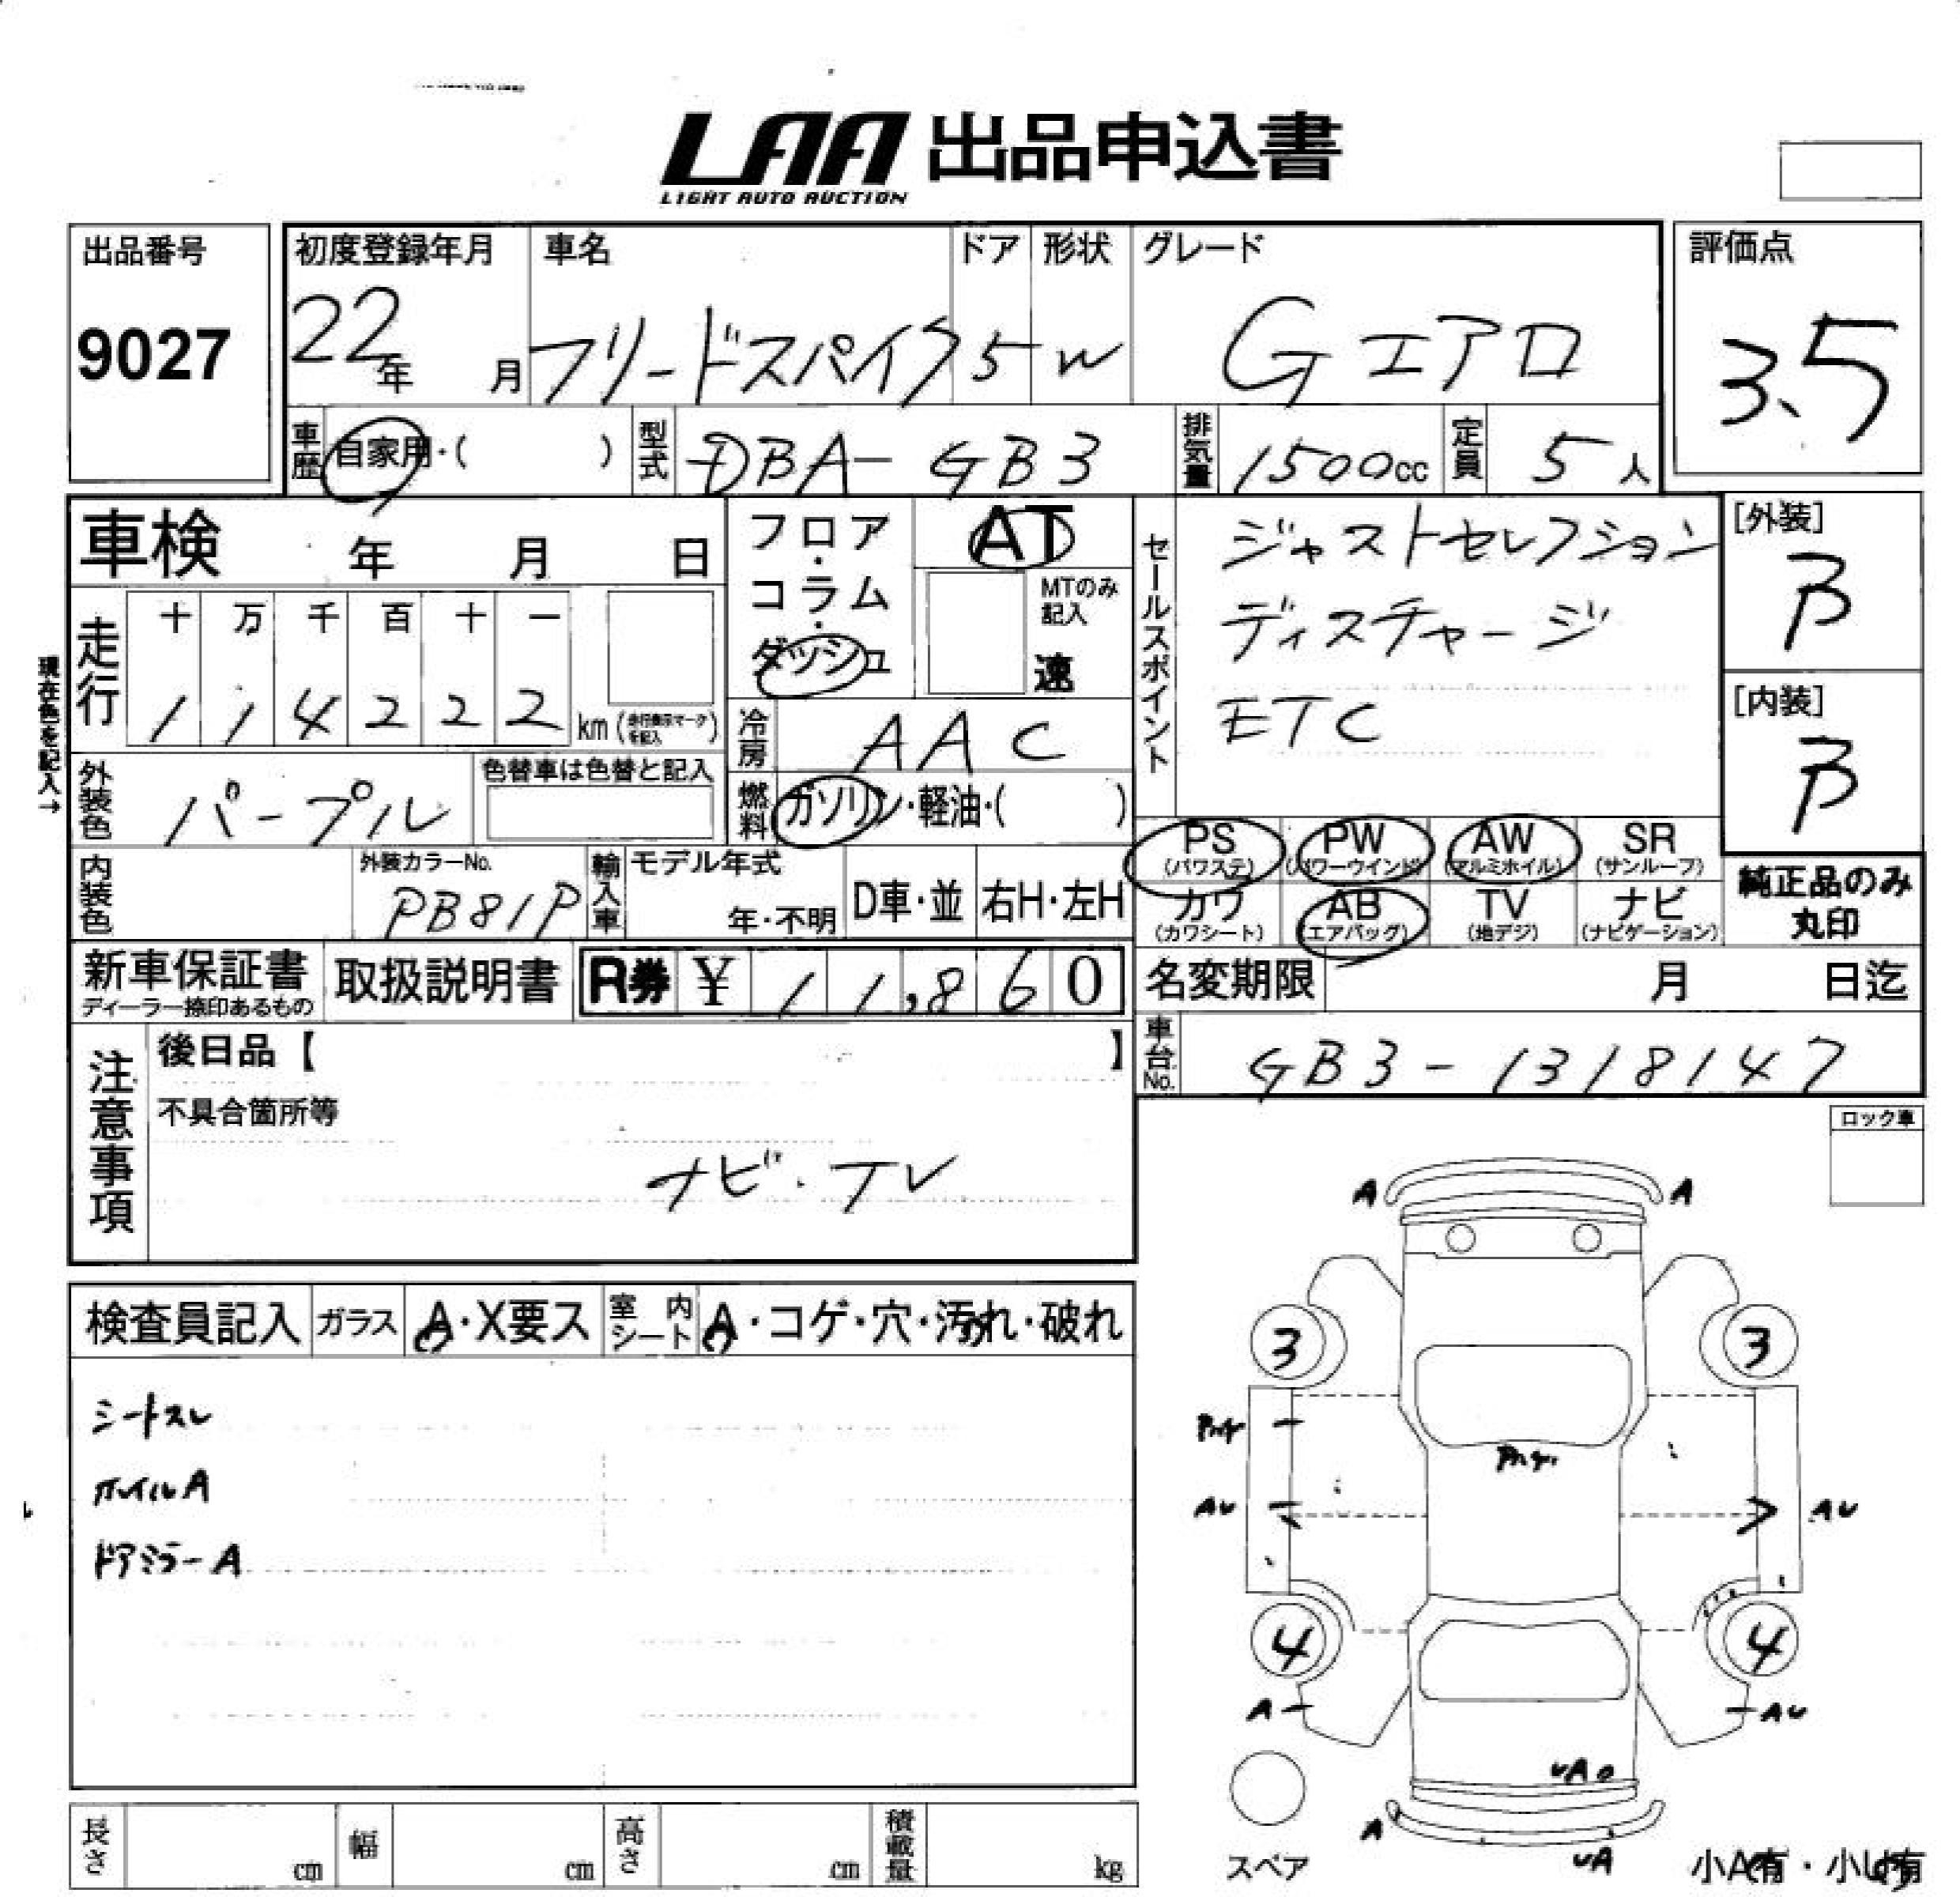 LAA 出品申込書
LIGHT AUTO AUCTION
出品番号
9027
初度登録年月
22年 月
車名
フリードスパイク
ドア
5
形状
W
グレード
Gエアロ
評価点
3.5
車歴 自家用・( )
型式 DBA-GB3
排気量 1500cc
定員 5人
車検 年 月 日
フロア・コラム・ダッシュ
AT
MTのみ記入
速
セールスポイント
ジャストセレクション
ディスチャージ
ETC
[外装]
B
[内装]
B
現在色を記入→
走行
十 万 千 百 十 一
1 1 4 2 2 2 km (走行表示マークを記入)
冷房 AAC
外装色 パープル
色替車は色替と記入
燃料 ガソリン・軽油・( )
PS (パワステ)
PW (パワーウインド)
AW (アルミホイル)
SR (サンルーフ)
カワ (カワシート)
AB (エアバッグ)
TV (地デジ)
ナビ (ナビゲーション)
純正品のみ丸印
内装色
外装カラーNo.
PB81P
輸入車
モデル年式
年・不明
D車・並
右H・左H
新車保証書
ディーラー捺印あるもの
取扱説明書
R券 ¥ 11,860
名変期限 月 日迄
車台No. GB3-1318147
注意事項
後日品【 】
不具合箇所等
ナビ・TV
ロック車
検査員記入
ガラス A・X要ス
室内シート A・コゲ・穴・汚れ・破れ
シートスレ
ホイルA
ドアミラーA
A A
3 3
AU AU
4 4
A AU
UA
A UA
スペア
小A有・小U有
長さ cm
幅 cm
高さ cm
積載量 kg